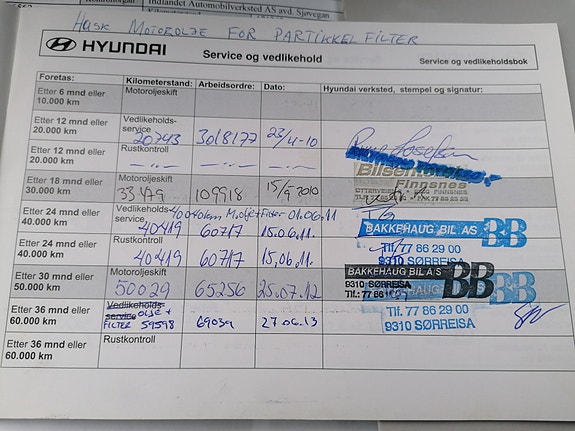 Indlandet Automobilverksted AS avd. Sjøvegan
HUSK MOTOROLJE FOR PARTIKKELFILTER
HYUNDAI Service og vedlikehold Service og vedlikeholdsbok
Foretas: Kilometerstand: Arbeidsordre: Dato: Hyundai verksted, stempel og signatur:
Etter 6 mnd eller 10.000 km Motoroljeskift
Etter 12 mnd eller 20.000 km Vedlikeholds-service 20743 3018177 23/4-10
Etter 12 mnd eller 20.000 km Rustkontroll —"— —"— —"—
Etter 18 mnd eller 30.000 km Motoroljeskift 33479 109918 15/9 2010
Finnsnes
Etter 24 mnd eller 40.000 km Vedlikeholds-service 40040km M.olje+Filter 01.06.11
40419 60717 15.06.11.
BAKKEHAUG BIL AS BB
Tlf. 77 86 29 00
9310 SØRREISA
Etter 24 mnd eller 40.000 km Rustkontroll 40419 60717 15.06.11.
Etter 30 mnd eller 50.000 km Motoroljeskift 50029 65256 25.07.12
BAKKEHAUG BIL AS BB
9310 SØRREISA
Etter 36 mnd eller 60.000 km Vedlikeholds-service OLJE + FILTER 59598 69039 27.06.13
Tlf. 77 86 29 00
9310 SØRREISA
Etter 36 mnd eller 60.000 km Rustkontroll